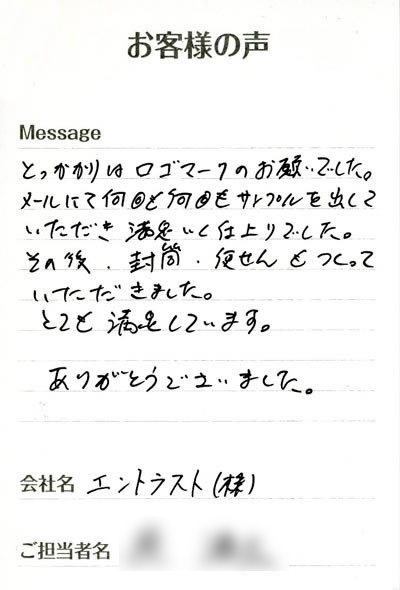 お客様の声
Message
とっかかりはロゴマークのお願いでした。
メールにて何回も何回もサンプルを出して
いただき満足いく仕上りでした。
その後、封筒、便せんもつくって
いただきました。
とても満足しています。
ありがとうございました。
会社名 エントラスト(様)
ご担当者名